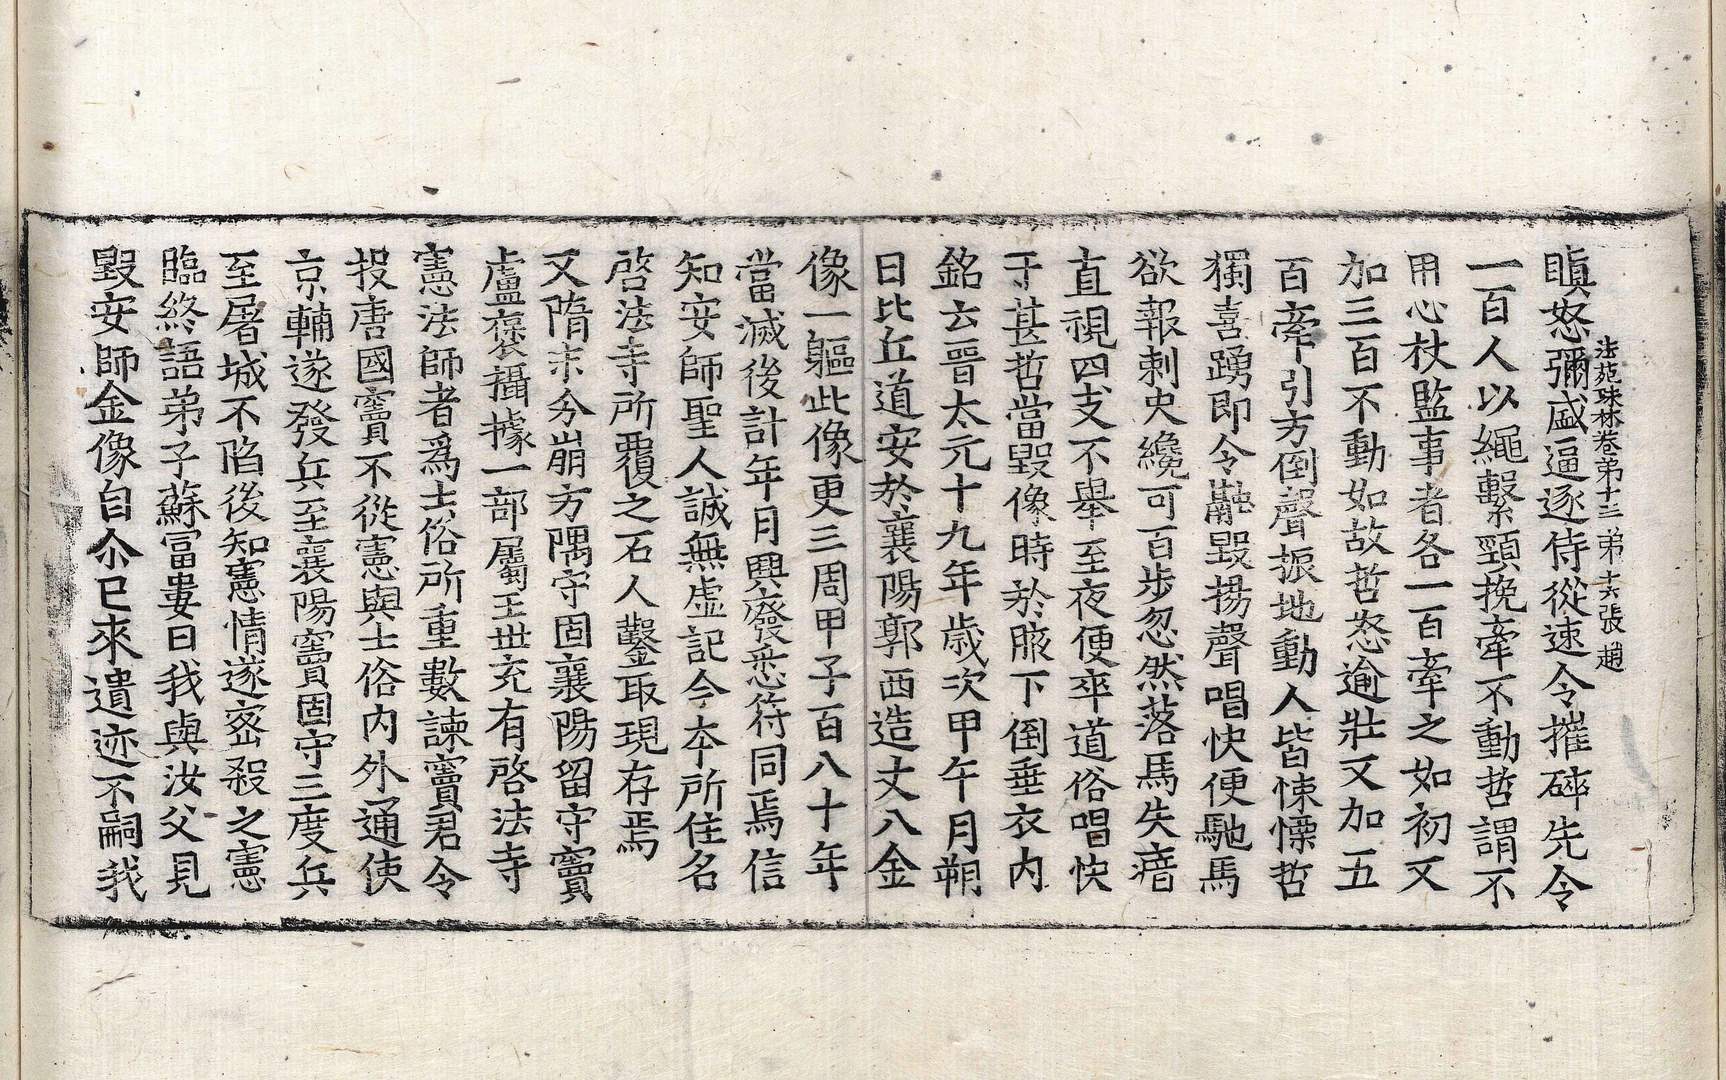 法苑珠林卷第十三 第十六張 趙
瞋怒彌盛逼逐侍從速令摧碎先令
一百人以繩繫頸挽牽不動哲謂不
用心杖監事者各一百牽之如初又
加三百不動如故哲怒逾壯又加五
百牽引方倒聲振地動人皆悚慄哲
獨喜踴即令融毀揚聲唱快便馳馬
欲報刺史纔可百步忽然落馬失瘖
直視四支不舉至夜便卒道俗唱快
于甚哲當毀像時於腋下倒垂衣內
銘云晉太元十九年歲次甲午月朔
日比丘道安於襄陽郭西造丈八金
像一軀此像更三周甲子百八十年
當滅後計年月興廢悉符同焉信
知安師聖人誠無虛記今本所住名
啓法寺所覆之石人鑿取現存焉
又隋末分崩方隅守固襄陽留守竇
盧褒攝據一部屬王世充有啓法寺
憲法師者爲士俗所重數諫竇君令
投唐國竇不從憲與士俗內外通使
京輔遂發兵至襄陽竇固守三度兵
至屠城不陷後知憲情遂密殺之憲
臨終語弟子蘇富婁曰我與汝父見
毀安師金像自尒已來遺迹不嗣我